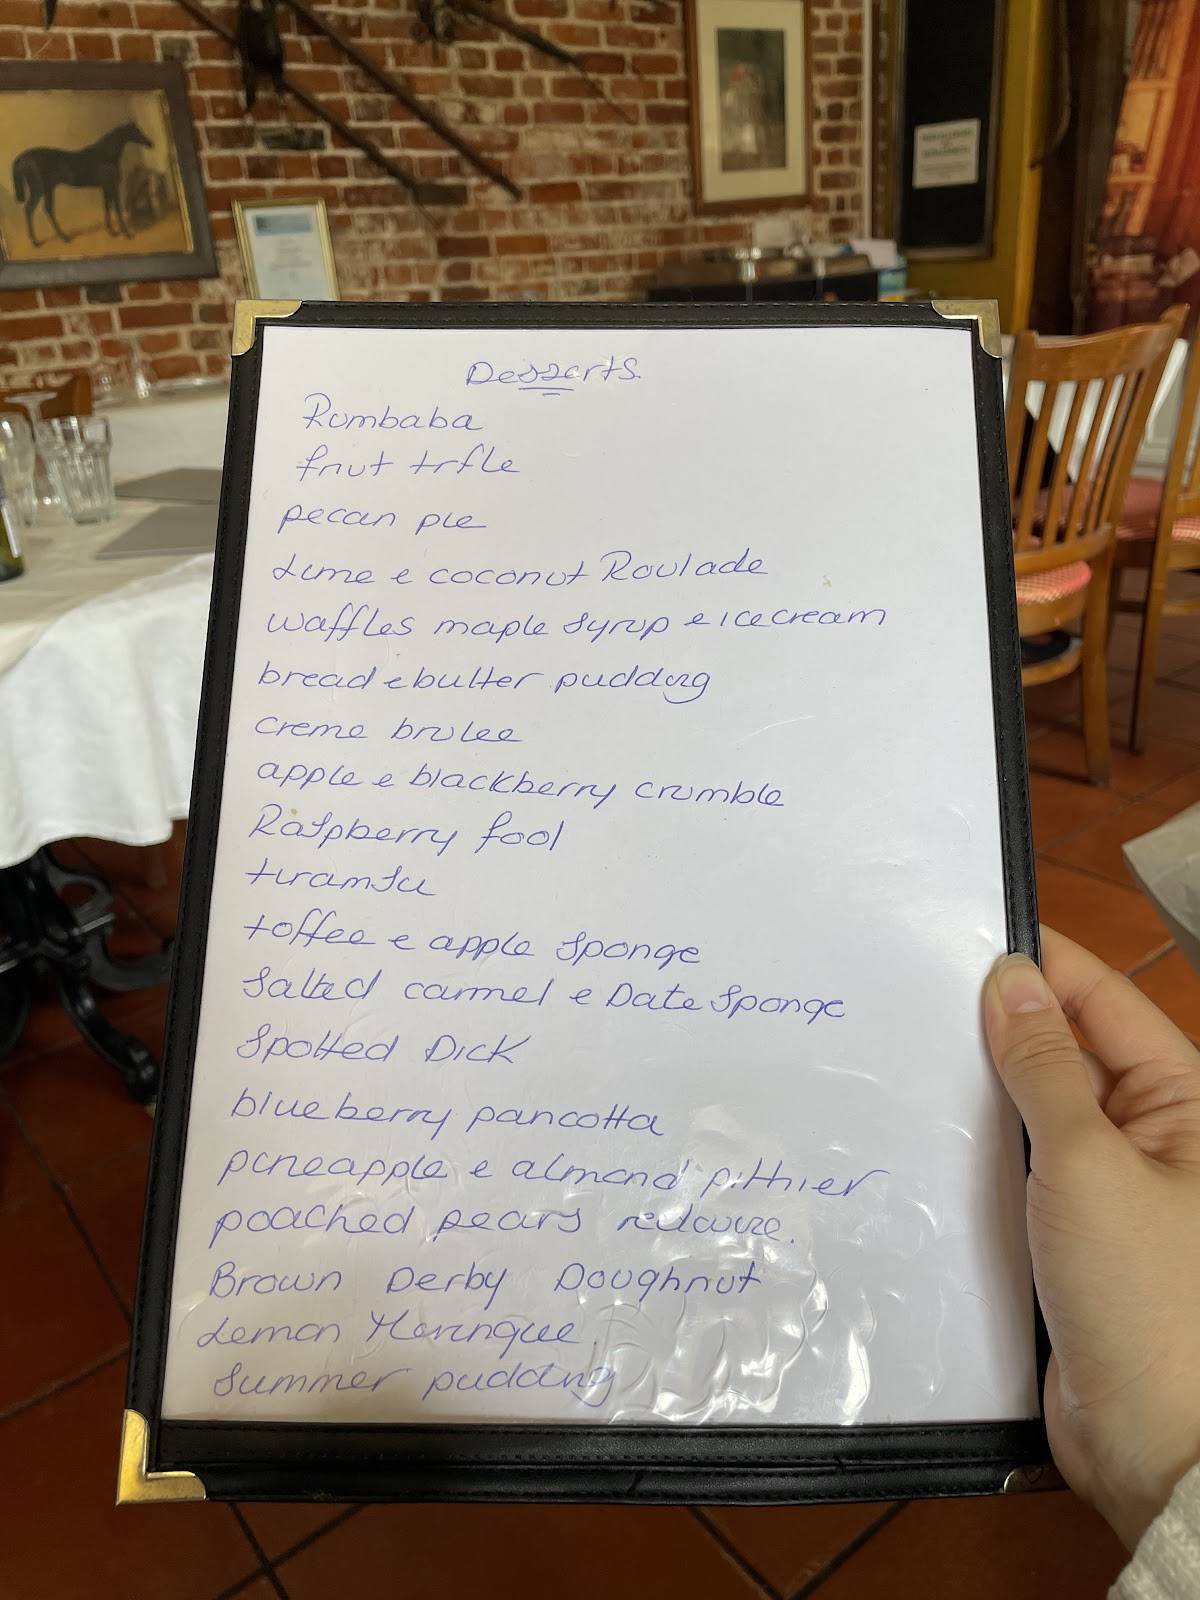 Desserts.
Rumbaba
fruit trfle
pecan pie
Lime e coconut Roulade
waffles maple syrup e icecream
bread e butter pudding
creme brulee
apple e blackberry crumble
Raspberry fool
tiramsu
toffee e apple sponge
Salted carmel e Date Sponge
Spotted Dick
blueberry pancotta
pineapple e almond pithier
poached pears redwine.
Brown Derby Doughnut
Lemon Meringue.
Summer pudding